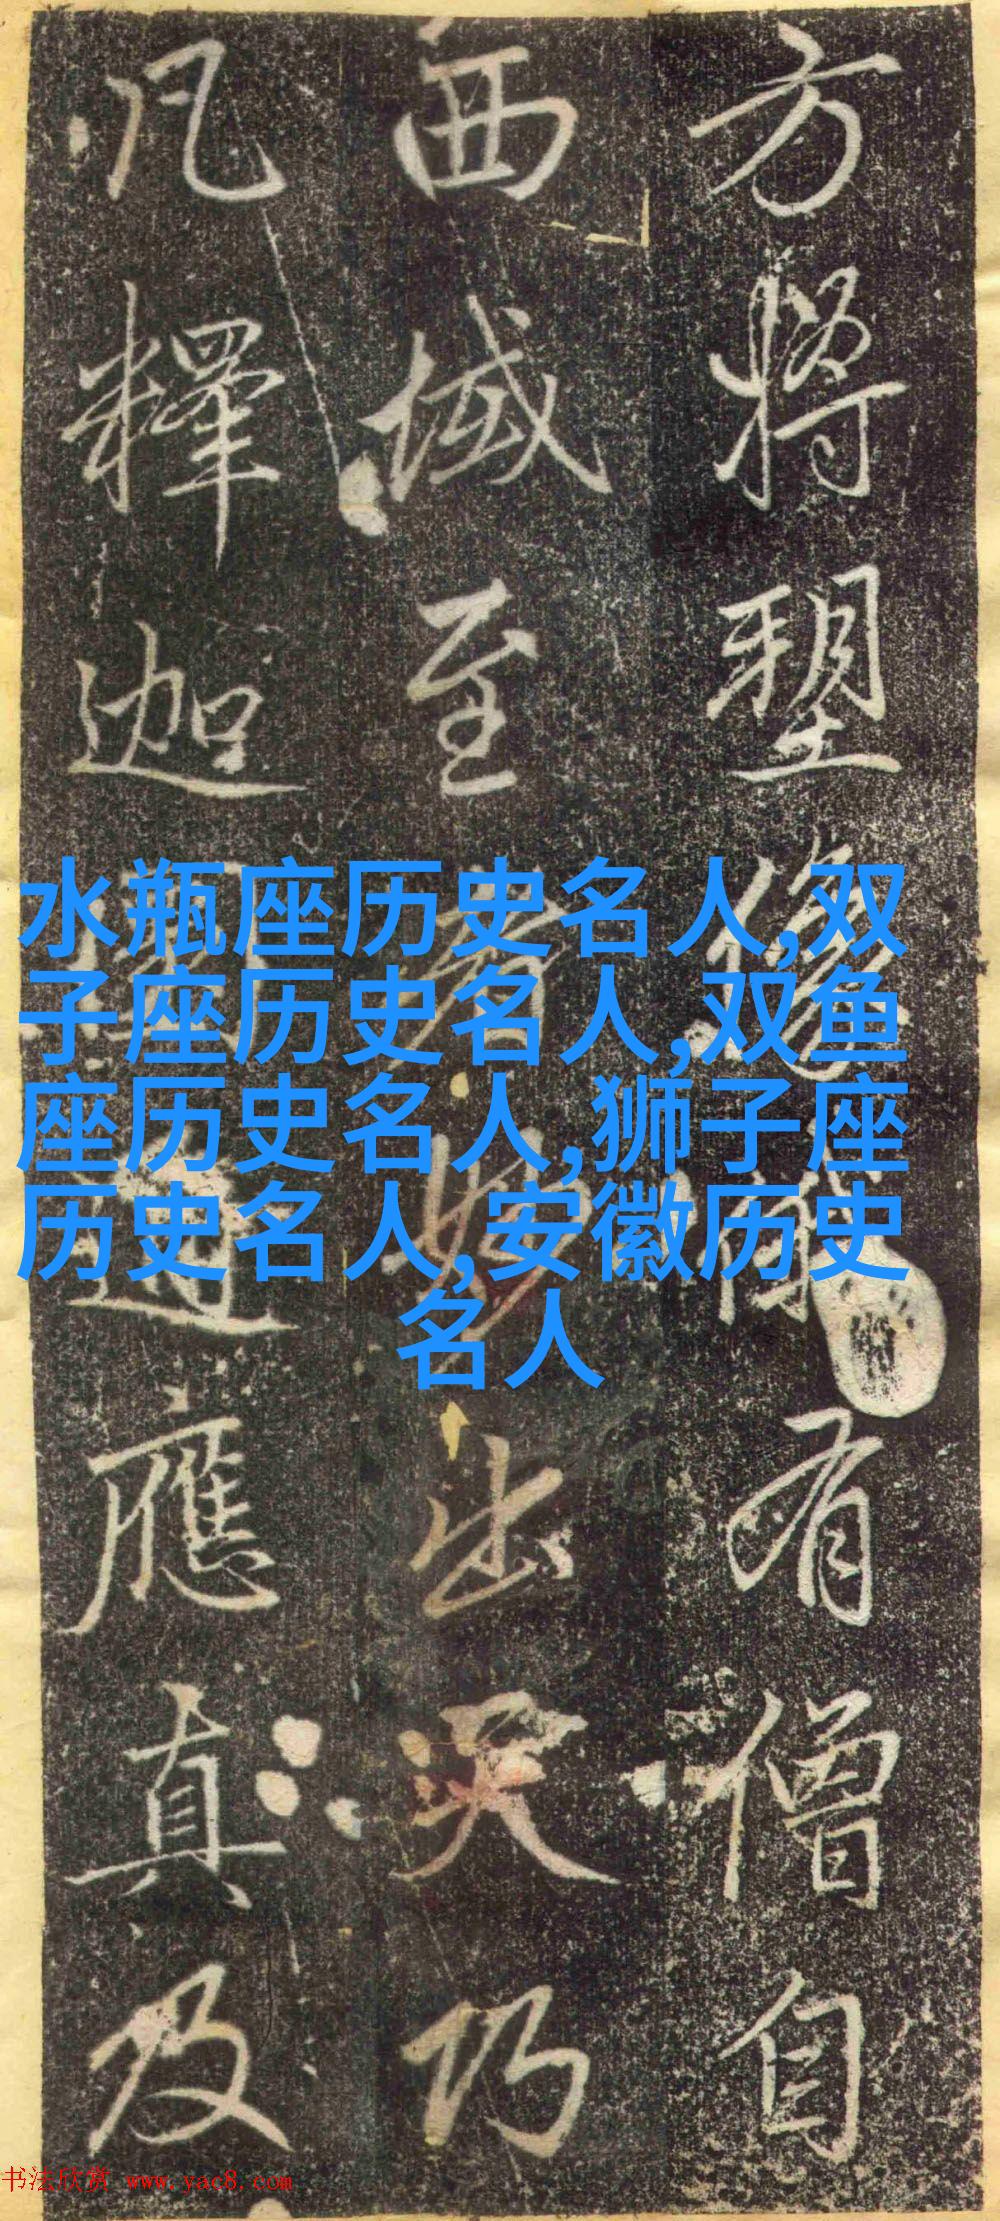 方將塑像有僧自
西域至妙出天巧
凡釋迦應真及
水瓶座历史名人,双
子座历史名人,双鱼
座历史名人,狮子座
历史名人,安徽历史
名人
书法欣赏 www.yac8.com